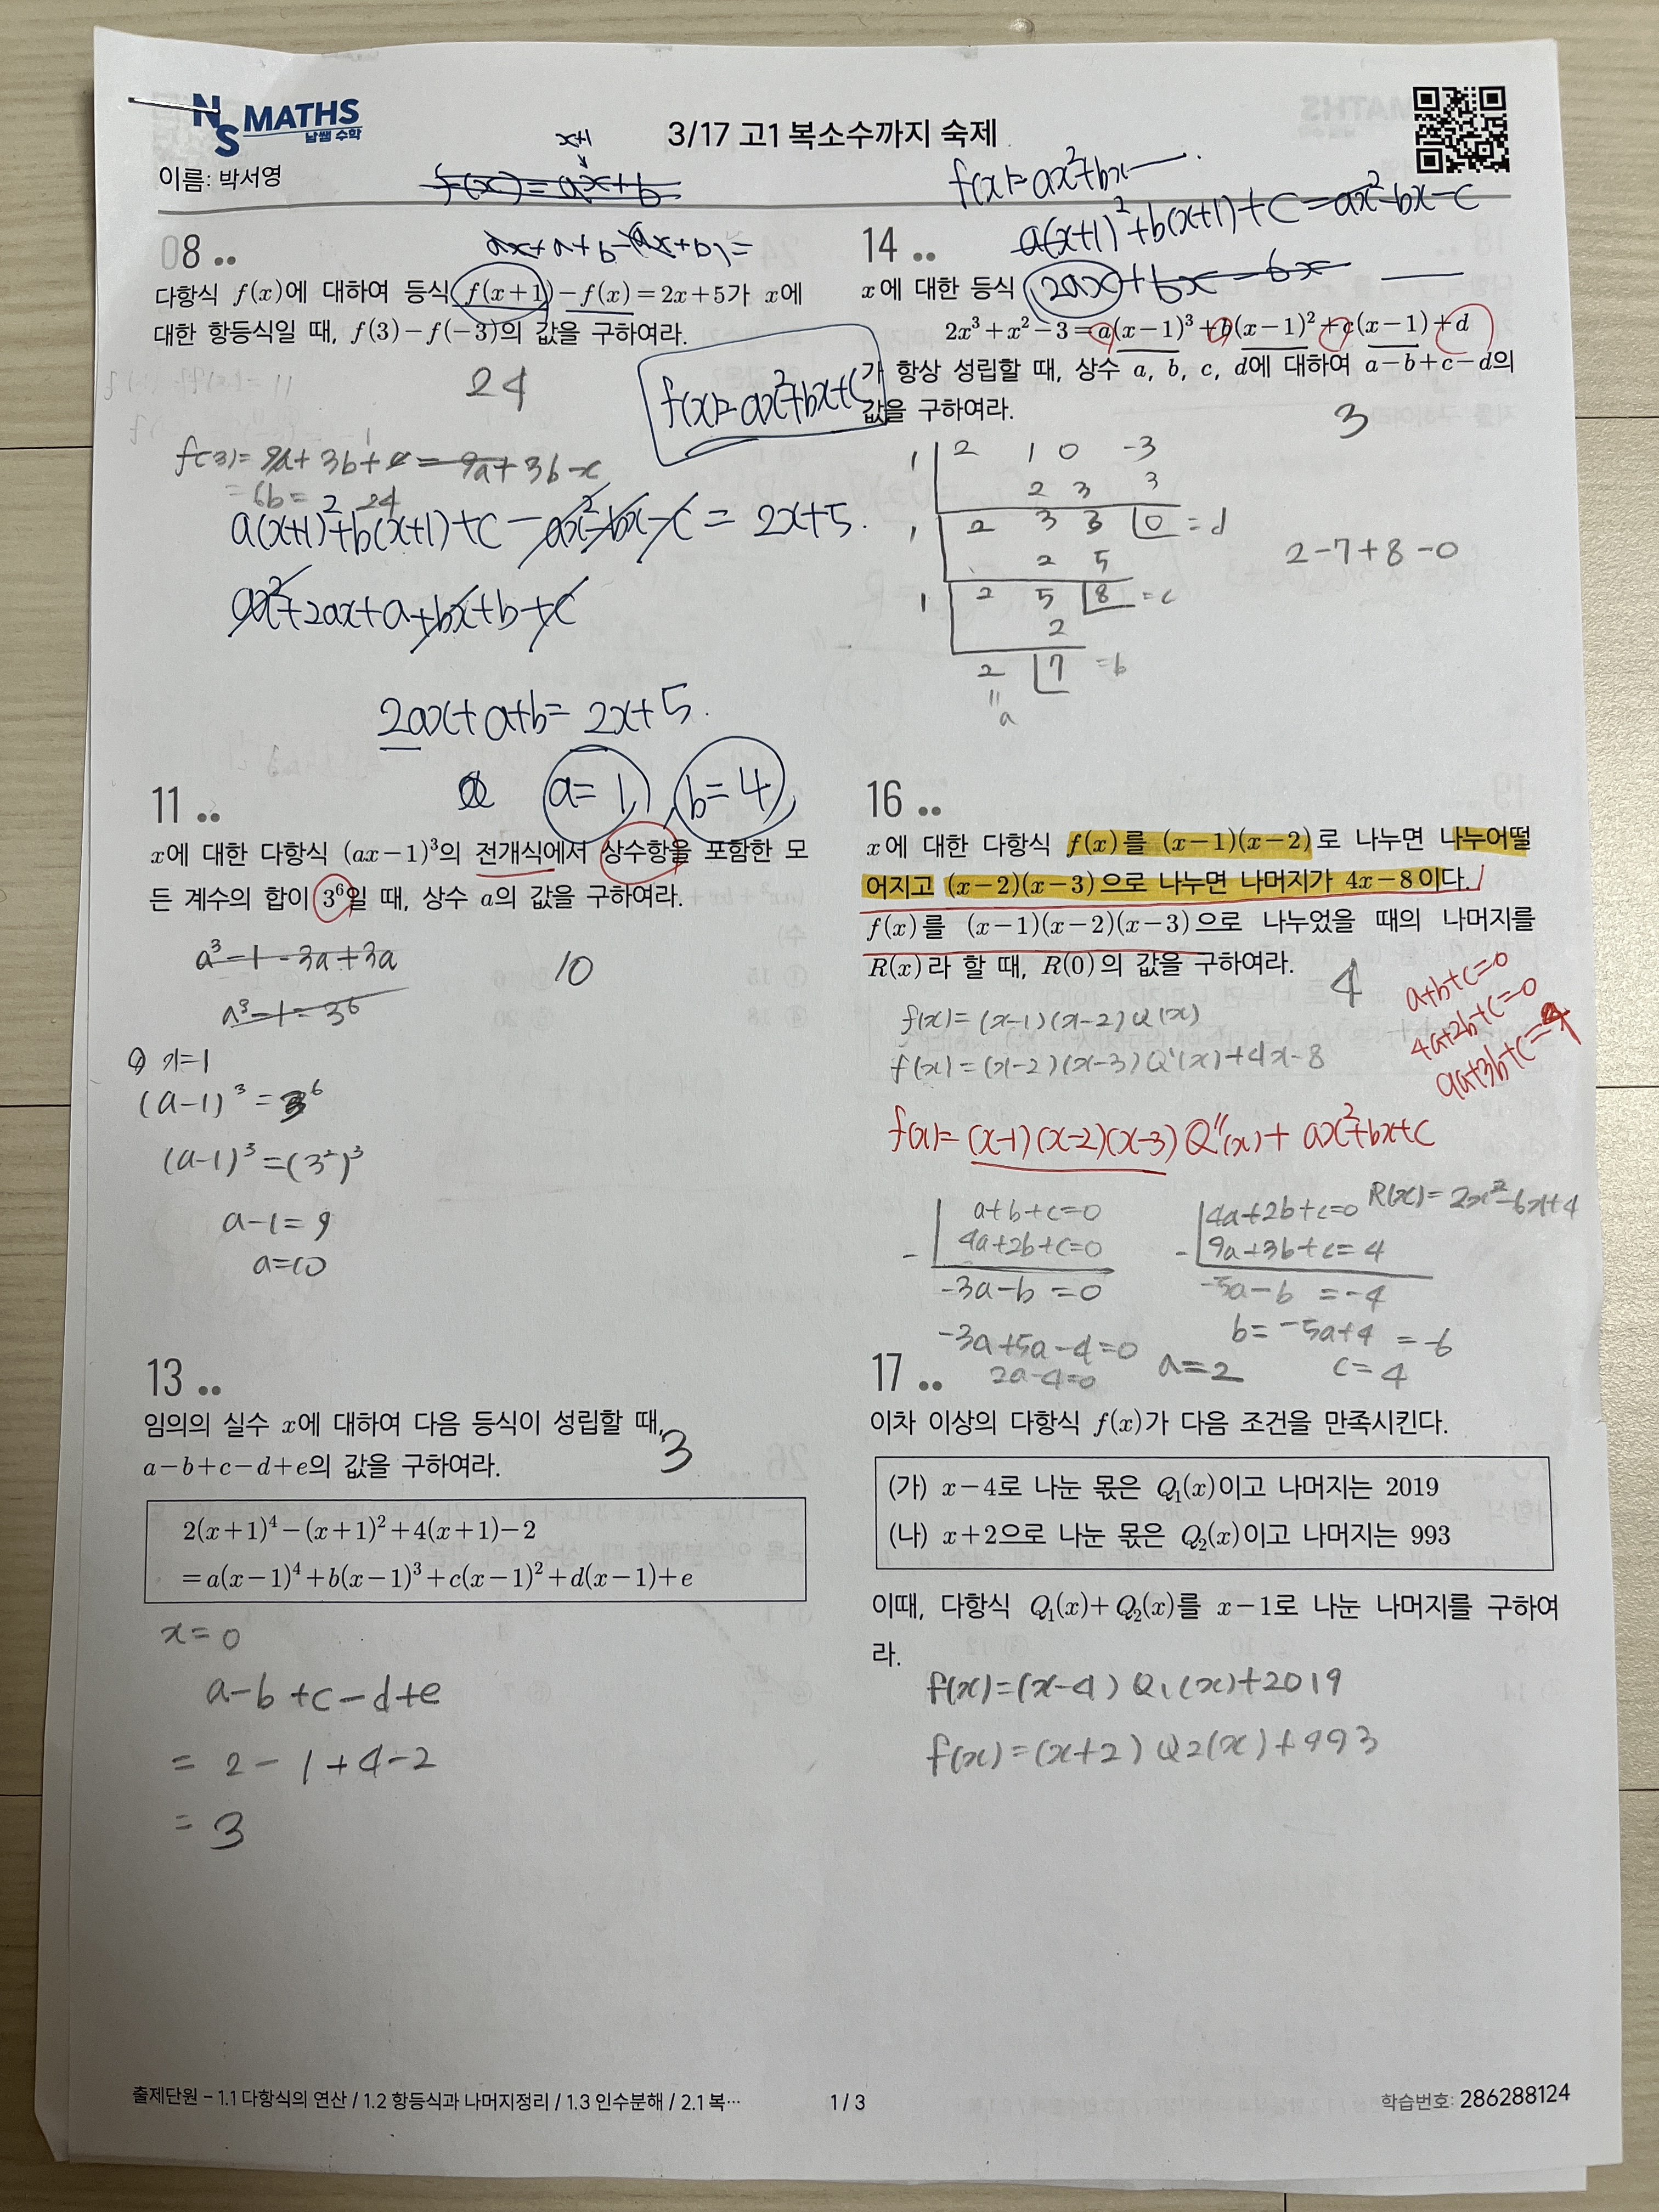 NS MATHS
남쌤 수학
3/17 고1 복소수까지 숙제
이름: 박서영
x+1
f(x)=ax+b
ax+a+b-(ax+b)=
08
다항식 f(x)에 대하여 등식 f(x+1)-f(x)=2x+5가 x에
대한 항등식일 때, f(3)-f(-3)의 값을 구하여라.
24
f(x)=ax²+bx+c
f(3)=9a+3b+c-9a+3b-c
=6b=24
a(x+1)²+b(x+1)+c-ax²-bx-c=2x+5.
ax²+2ax+a+bx+b+c
2ax+a+b=2x+5.
a=1, b=4,
11
x에 대한 다항식 (ax-1)³의 전개식에서 상수항을 포함한 모
든 계수의 합이 3⁶일 때, 상수 a의 값을 구하여라.
10
a³-1-3a+3a
a³-1=3⁶
x=1
(a-1)³=3⁶
(a-1)³=(3²)³
a-1=9
a=10
13
임의의 실수 x에 대하여 다음 등식이 성립할 때,
a-b+c-d+e의 값을 구하여라.
3
2(x+1)⁴-(x+1)²+4(x+1)-2
=a(x-1)⁴+b(x-1)³+c(x-1)²+d(x-1)+e
x=0
a-b+c-d+e
=2-1+4-2
=3
f(x)=ax²+bx
a(x+1)²+b(x+1)+c-ax²-bx-c
2ax+bx-bx
14
x에 대한 등식
2x³+x²-3=a(x-1)³+b(x-1)²+c(x-1)+d
가 항상 성립할 때, 상수 a, b, c, d에 대하여 a-b+c-d의
값을 구하여라.
3
1 2 1 0 -3
2 3 3
1 2 3 3 0 =d
2 5
1 2 5 8 =c
2
2 7 =b
=
a
2-7+8-0
16
x에 대한 다항식 f(x)를 (x-1)(x-2)로 나누면 나누어떨
어지고 (x-2)(x-3)으로 나누면 나머지가 4x-8이다.
f(x)를 (x-1)(x-2)(x-3)으로 나누었을 때의 나머지를
R(x)라 할 때, R(0)의 값을 구하여라.
4
a+b+c=0
4a+2b+c=0
9a+3b+c=4
f(x)=(x-1)(x-2)Q(x)
f(x)=(x-2)(x-3)Q'(x)+4x-8
f(x)=(x-1)(x-2)(x-3)Q''(x)+ax²+bx+c
a+b+c=0
- 4a+2b+c=0
-3a-b=0
4a+2b+c=0
- 9a+3b+c=4
-5a-b=-4
R(x)=2x²-6x+4
b=-5a+4=-6
-3a+5a-4=0
2a-4=0
a=2
c=4
17
이차 이상의 다항식 f(x)가 다음 조건을 만족시킨다.
(가) x-4로 나눈 몫은 Q₁(x)이고 나머지는 2019
(나) x+2으로 나눈 몫은 Q₂(x)이고 나머지는 993
이때, 다항식 Q₁(x)+Q₂(x)를 x-1로 나눈 나머지를 구하여
라.
f(x)=(x-4)Q₁(x)+2019
f(x)=(x+2)Q2(x)+993
출제단원 - 1.1 다항식의 연산 / 1.2 항등식과 나머지정리 / 1.3 인수분해 / 2.1 복…
1 / 3
학습번호: 286288124